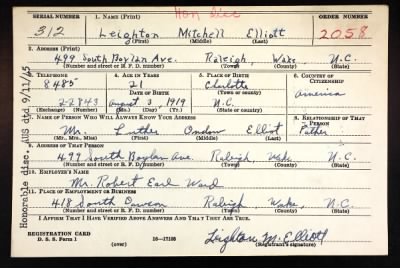 Hon Disc
SERIAL NUMBER 1. NAME (Print) ORDER NUMBER
312 Leighton Mitchell Elliott 2058
(First) (Middle) (Last)
2. ADDRESS (Print)
499 South Boylan Ave. Raleigh, Wake, N.C.
(Number and street or R. F. D. number) (Town) (County) (State)
3. TELEPHONE 4. AGE IN YEARS 5. PLACE OF BIRTH 6. COUNTRY OF CITIZENSHIP
8485 21 Charlotte
DATE OF BIRTH (Town or county) America
2-2843 August 3 1919 N.C.
(Exchange) (Number) (Mo.) (Day) (Yr.) (State or country)
7. NAME OF PERSON WHO WILL ALWAYS KNOW YOUR ADDRESS 8. RELATIONSHIP OF THAT PERSON
Mr. Luther Condon Elliott Father
(Mr., Mrs., Miss) (First) (Middle) (Last)
9. ADDRESS OF THAT PERSON
499 South Boylan Ave. Raleigh, Wake, N.C.
(Number and street or R. F. D. number) (Town) (County) (State)
10. EMPLOYER'S NAME
Mr. Robert Earl Ward
11. PLACE OF EMPLOYMENT OR BUSINESS
418 South Dawson Raleigh, Wake, N.C.
(Number and street or R. F. D. number) (Town) (County) (State)
I AFFIRM THAT I HAVE VERIFIED ABOVE ANSWERS AND THAT THEY ARE TRUE.
REGISTRATION CARD
D. S. S. Form 1 (over) 16-17105
Leighton M. Elliott
(Registrant's signature)
Honorable disc. AUS dtd 9/11/45